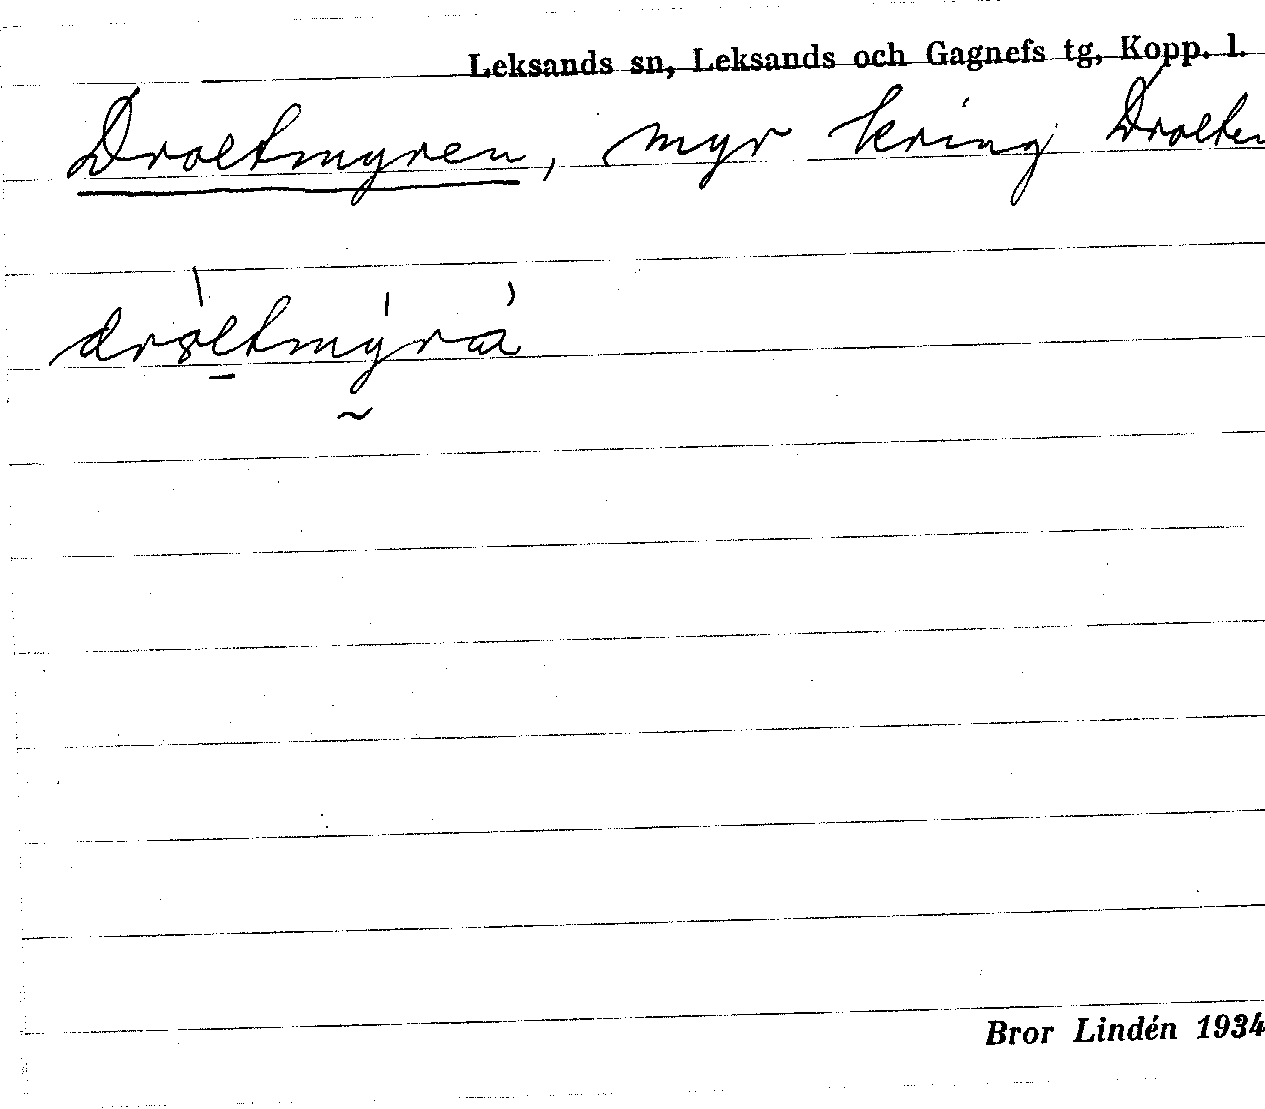 Leksands sn, Leksands och Gagnefs tg, Kopp. l.
Droltmyren, myr kring Drolten
Bror Lindén 1934